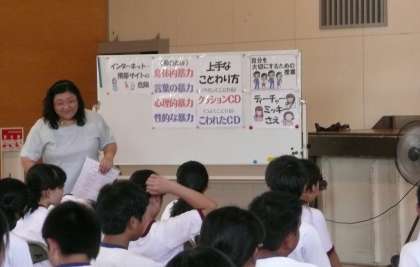 インターネット・
携帯サイトの
危険
身体的暴力
言葉の暴力
心理的暴力
性的な暴力
上手な
ことわり方
クッションCD
こわれたCD
自分を
大切にするための
授業
ティーチャー
ミッキー
さえ